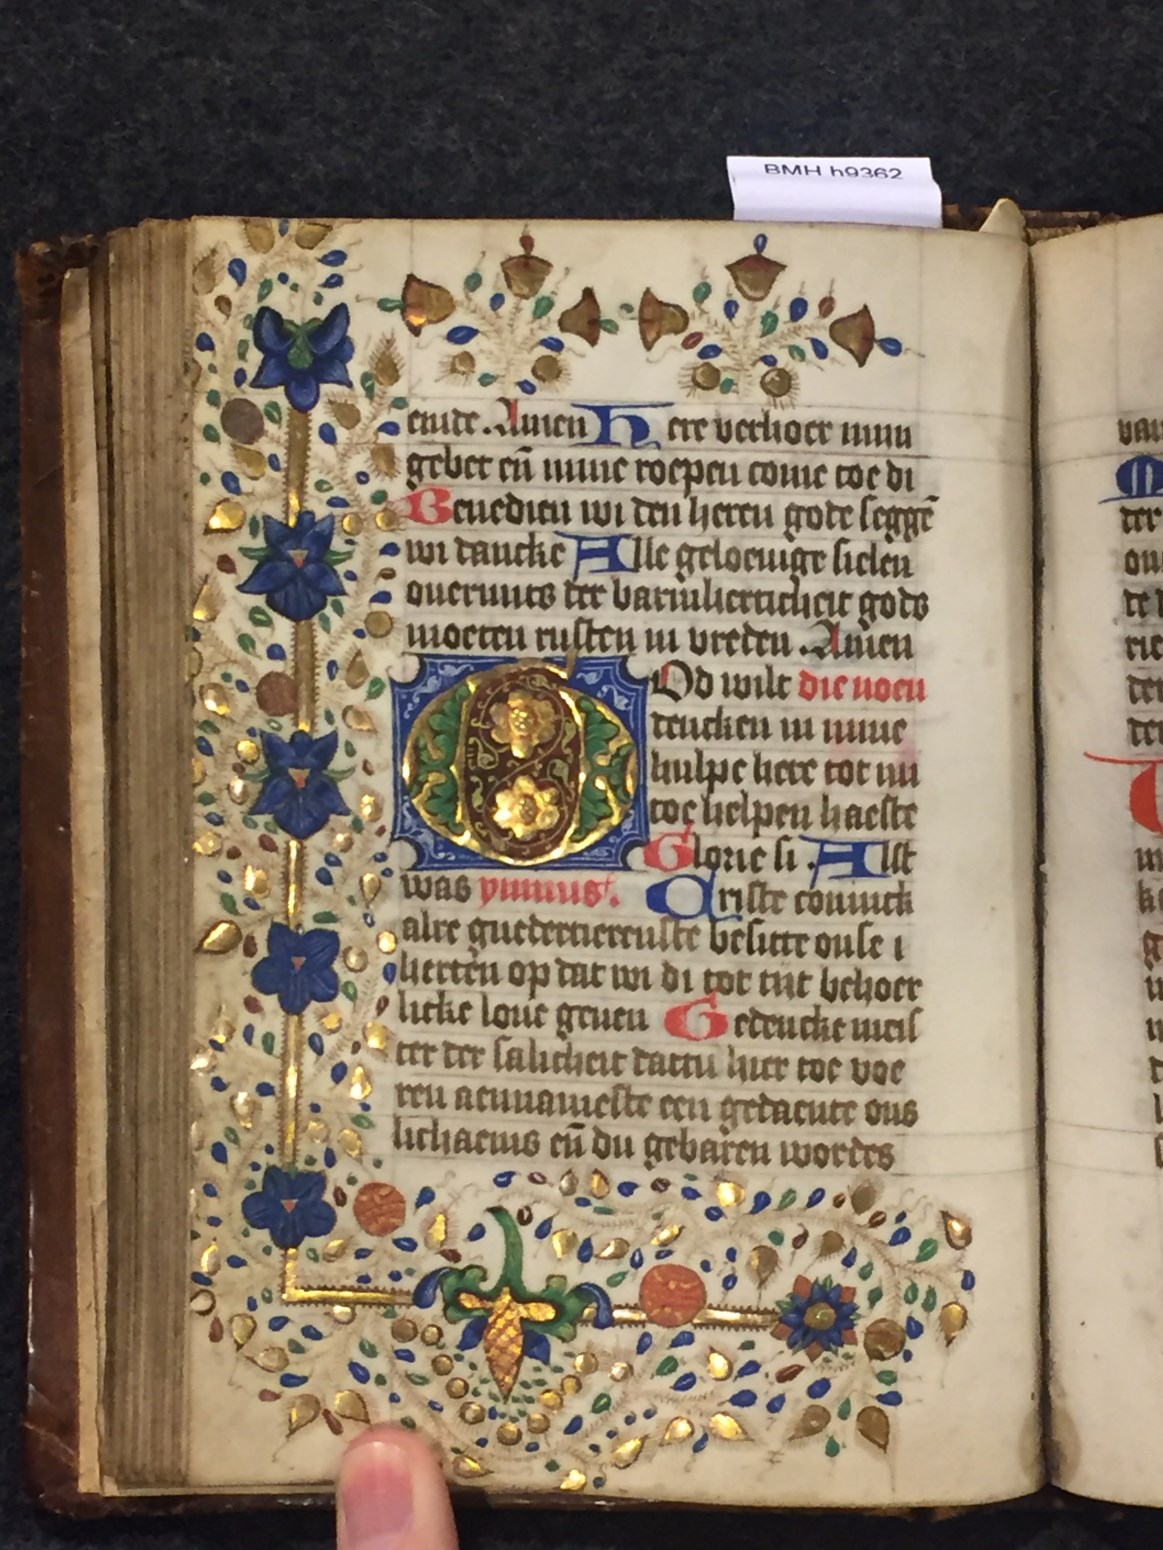 BMH h9362
emde. Amen Here verhoer mijn
gebet eñ mine roepen come toe di
Benedien wi den heren gode seggẽ
wi dancke Alle geloeuige sielen
ouermits der barmherticheit gods
moeten rusten in vreden. Amen
God wilt die noen
dencken in mine
hulpe here tot mi
toe helpen haeste
Glorie si. Alst
was ymnus. Criste coninck
alre guedertierenste besitte onse
herten op dat wi di tot tijt behoer
licke loue geuen Gedencke meis
ter der salicheit dattu hier toe voe
ren aennameste een gedaente ons
lichaems eñ du gebaren wordes